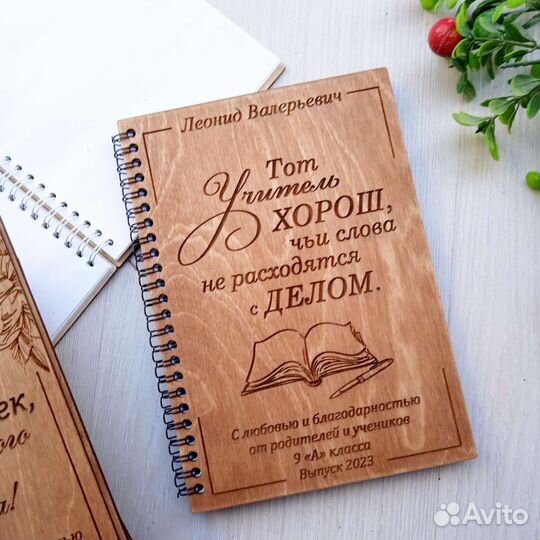 Леонид Валерьевич
Тот
Учитель
ХОРОШ,
чьи слова
не расходятся
с ДЕЛОМ.
С любовью и благодарностью
от родителей и учеников
9 «А» класса
Выпуск 2023
ек,
ого
а!
ью
Avito